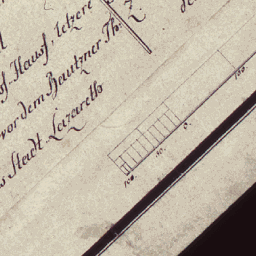 Hauss, letzere
vor dem Bautzner Th:
s Stadt Lazareth
100. 50. 0. 100.